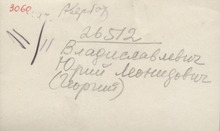 3060
26512
11 Владиславлевич
Юрий Леонидович
(Георгий)